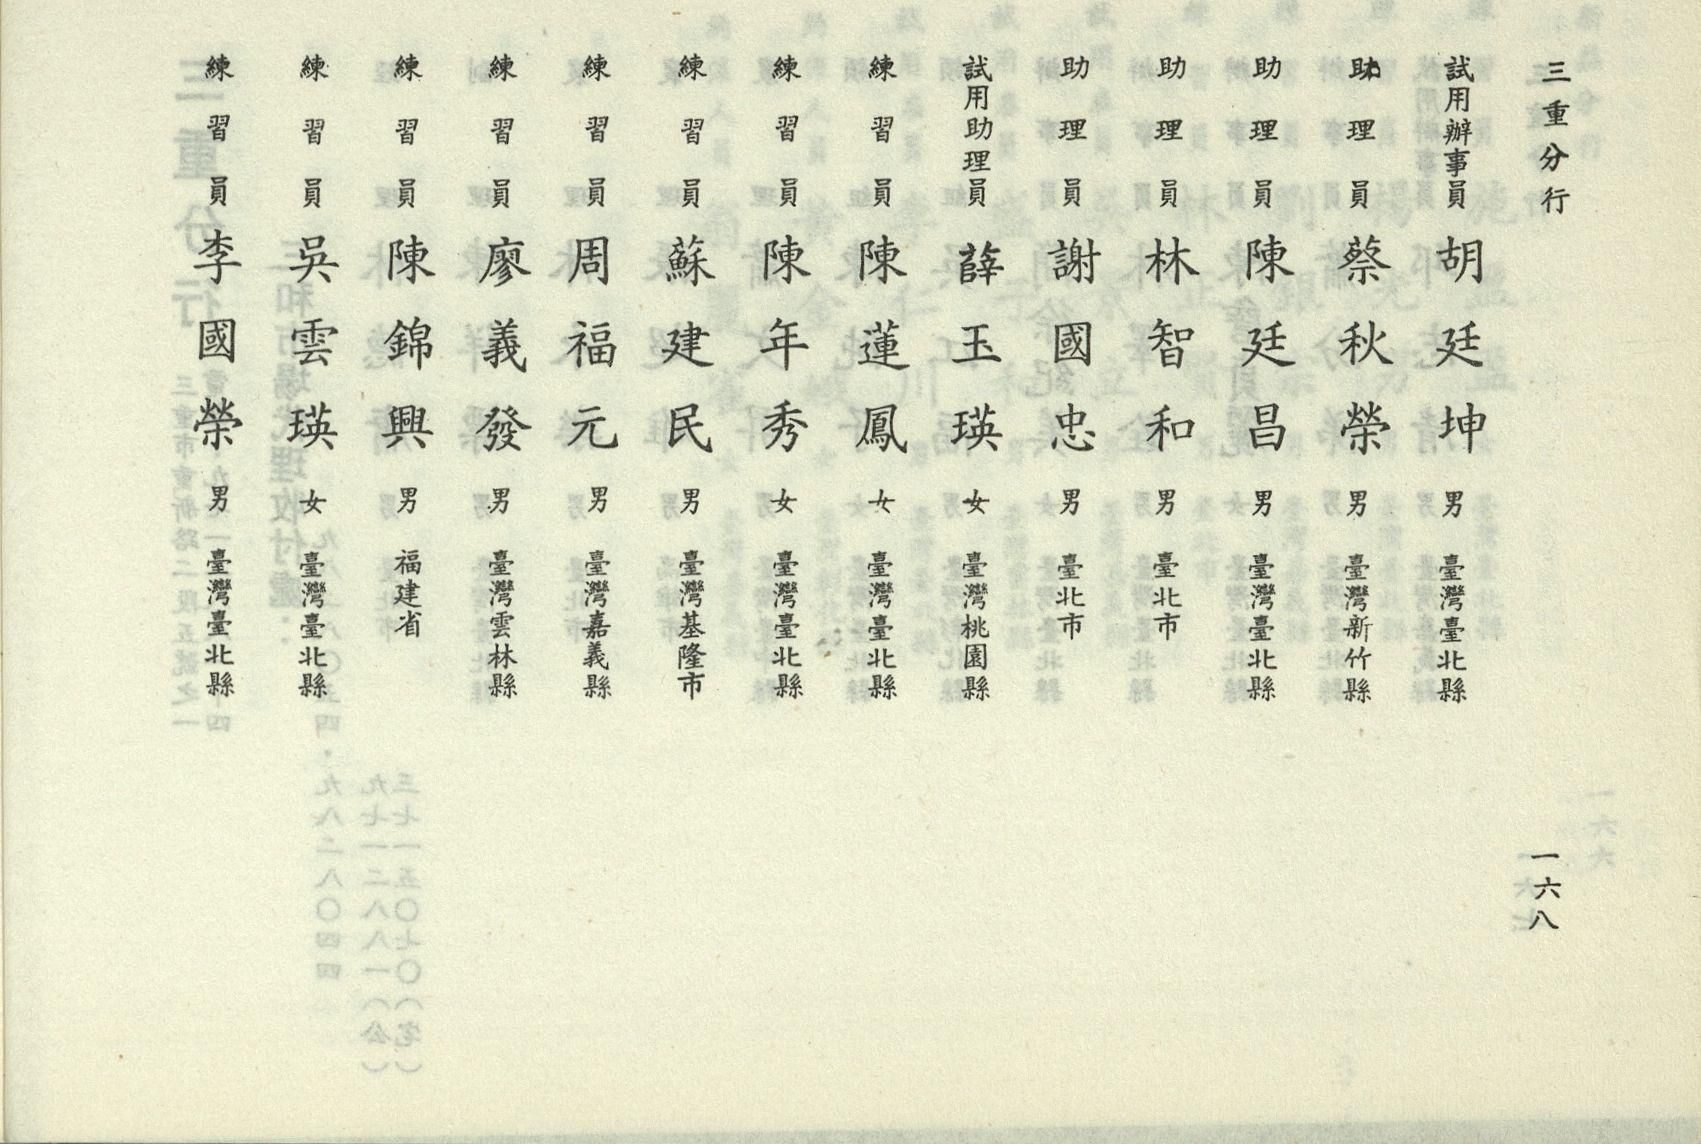 三重分行
試用辦事員 胡廷坤 男 臺灣臺北縣
助理員 蔡秋榮 男 臺灣新竹縣
助理員 陳廷昌 男 臺灣臺北縣
助理員 林智和 男 臺北市
助理員 謝國忠 男 臺北市
試用助理員 薛玉瑛 女 臺灣桃園縣
練習員 陳蓮鳳 女 臺灣臺北縣
練習員 陳年秀 女 臺灣臺北縣
練習員 蘇建民 男 臺灣基隆市
練習員 周福元 男 臺灣嘉義縣
練習員 廖義發 男 臺灣雲林縣
練習員 陳錦興 男 福建省
練習員 吳雲瑛 女 臺灣臺北縣
練習員 李國榮 男 臺灣臺北縣
一六八